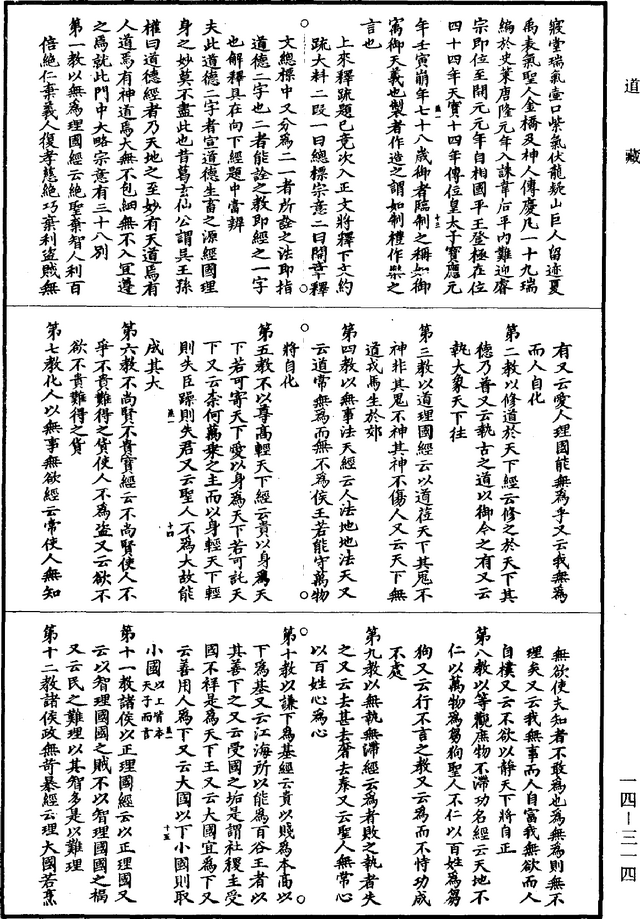 道藏
寢堂瑞氣壺口紫氣伏龍疑山巨人留迹夏
禹表氣聖人金橋及神人傳慶凡一十九瑞
編於史策唐隆元年入誅韋后平內難迎睿
宗即位至開元元年自相國平王登極在位
四十四年天寶十四年傳位皇太子寶應元
年壬寅崩年七十八歲御者臨制之稱如御
寓御天義也製者作造之謂如制禮作樂之
言也
上來釋疏題已竟次入正文將釋下文約
疏大科二段一曰總標宗意二曰開章釋
文總標中又分為二一者所詮之法即指
道德二字也二者能詮之教即經之一字
也解釋具在向下經題中當辨
夫此道德二字者宣道德生畜之源經國理
身之妙莫不盡此也昔葛玄仙公謂吳王孫
權曰道德經者乃天地之至妙有天道焉有
人道焉有神道焉大無不包細無不入宜遵
之焉就此門中大略宗意有三十八別
第一教以無為理國經云絕聖棄智人利百
倍絕仁棄義人復孝慈絕巧棄利盜賊無
有又云愛人理國能無為乎又云我無為
而人自化
第二教以修道於天下經云修之於天下其
德乃普又云執古之道以御今之有又云
執大象天下往
第三教以道理國經云以道莅天下其鬼不
神非其鬼不神其神不傷人又云天下無
道戎馬生於郊
第四教以無事法天經云人法地地法天又
云道常無為而無不為侯王若能守萬物
將自化
第五教不以尊高輕天下經云貴以身為天
下若可寄天下愛以身為天下若可託天
下又云柰何萬乘之主而以身輕天下輕
則失臣躁則失君又云聖人不為大故能
成其大
第六教不尚賢不貴寶經云不尚賢使人不
爭不貴難得之貨使人不為盜又云欲不
欲不貴難得之貨
第七教化人以無事無欲經云常使人無知
無欲使夫知者不敢為也為無為則無不
理矣又云我無事而人自富我無欲而人
自樸又云不欲以靜天下將自正
第八教以等觀庶物不滯功名經云天地不
仁以萬物為芻狗聖人不仁以百姓為芻
狗又云行不言之教又云為而不恃功成
不處
第九教以無執無滯經云為者敗之執者失
之又云去甚去奢去泰又云聖人無常心
以百姓心為心
第十教以謙下為基經云貴以賤為本高以
下為基又云江海所以能為百谷王者以
其善下之又云受國之垢是謂社稷主受
國不祥是為天下王又云大國宜為下又
云善用人為下又云大國以下小國則取
小國以上皆本天子而言
第十一教諸侯以正理國經云以正理國又
云以智理國國之賊不以智理國國之福
又云民之難理以其智多是以難理
第十二教諸侯政無苛暴經云理大國若烹
一四—三一四